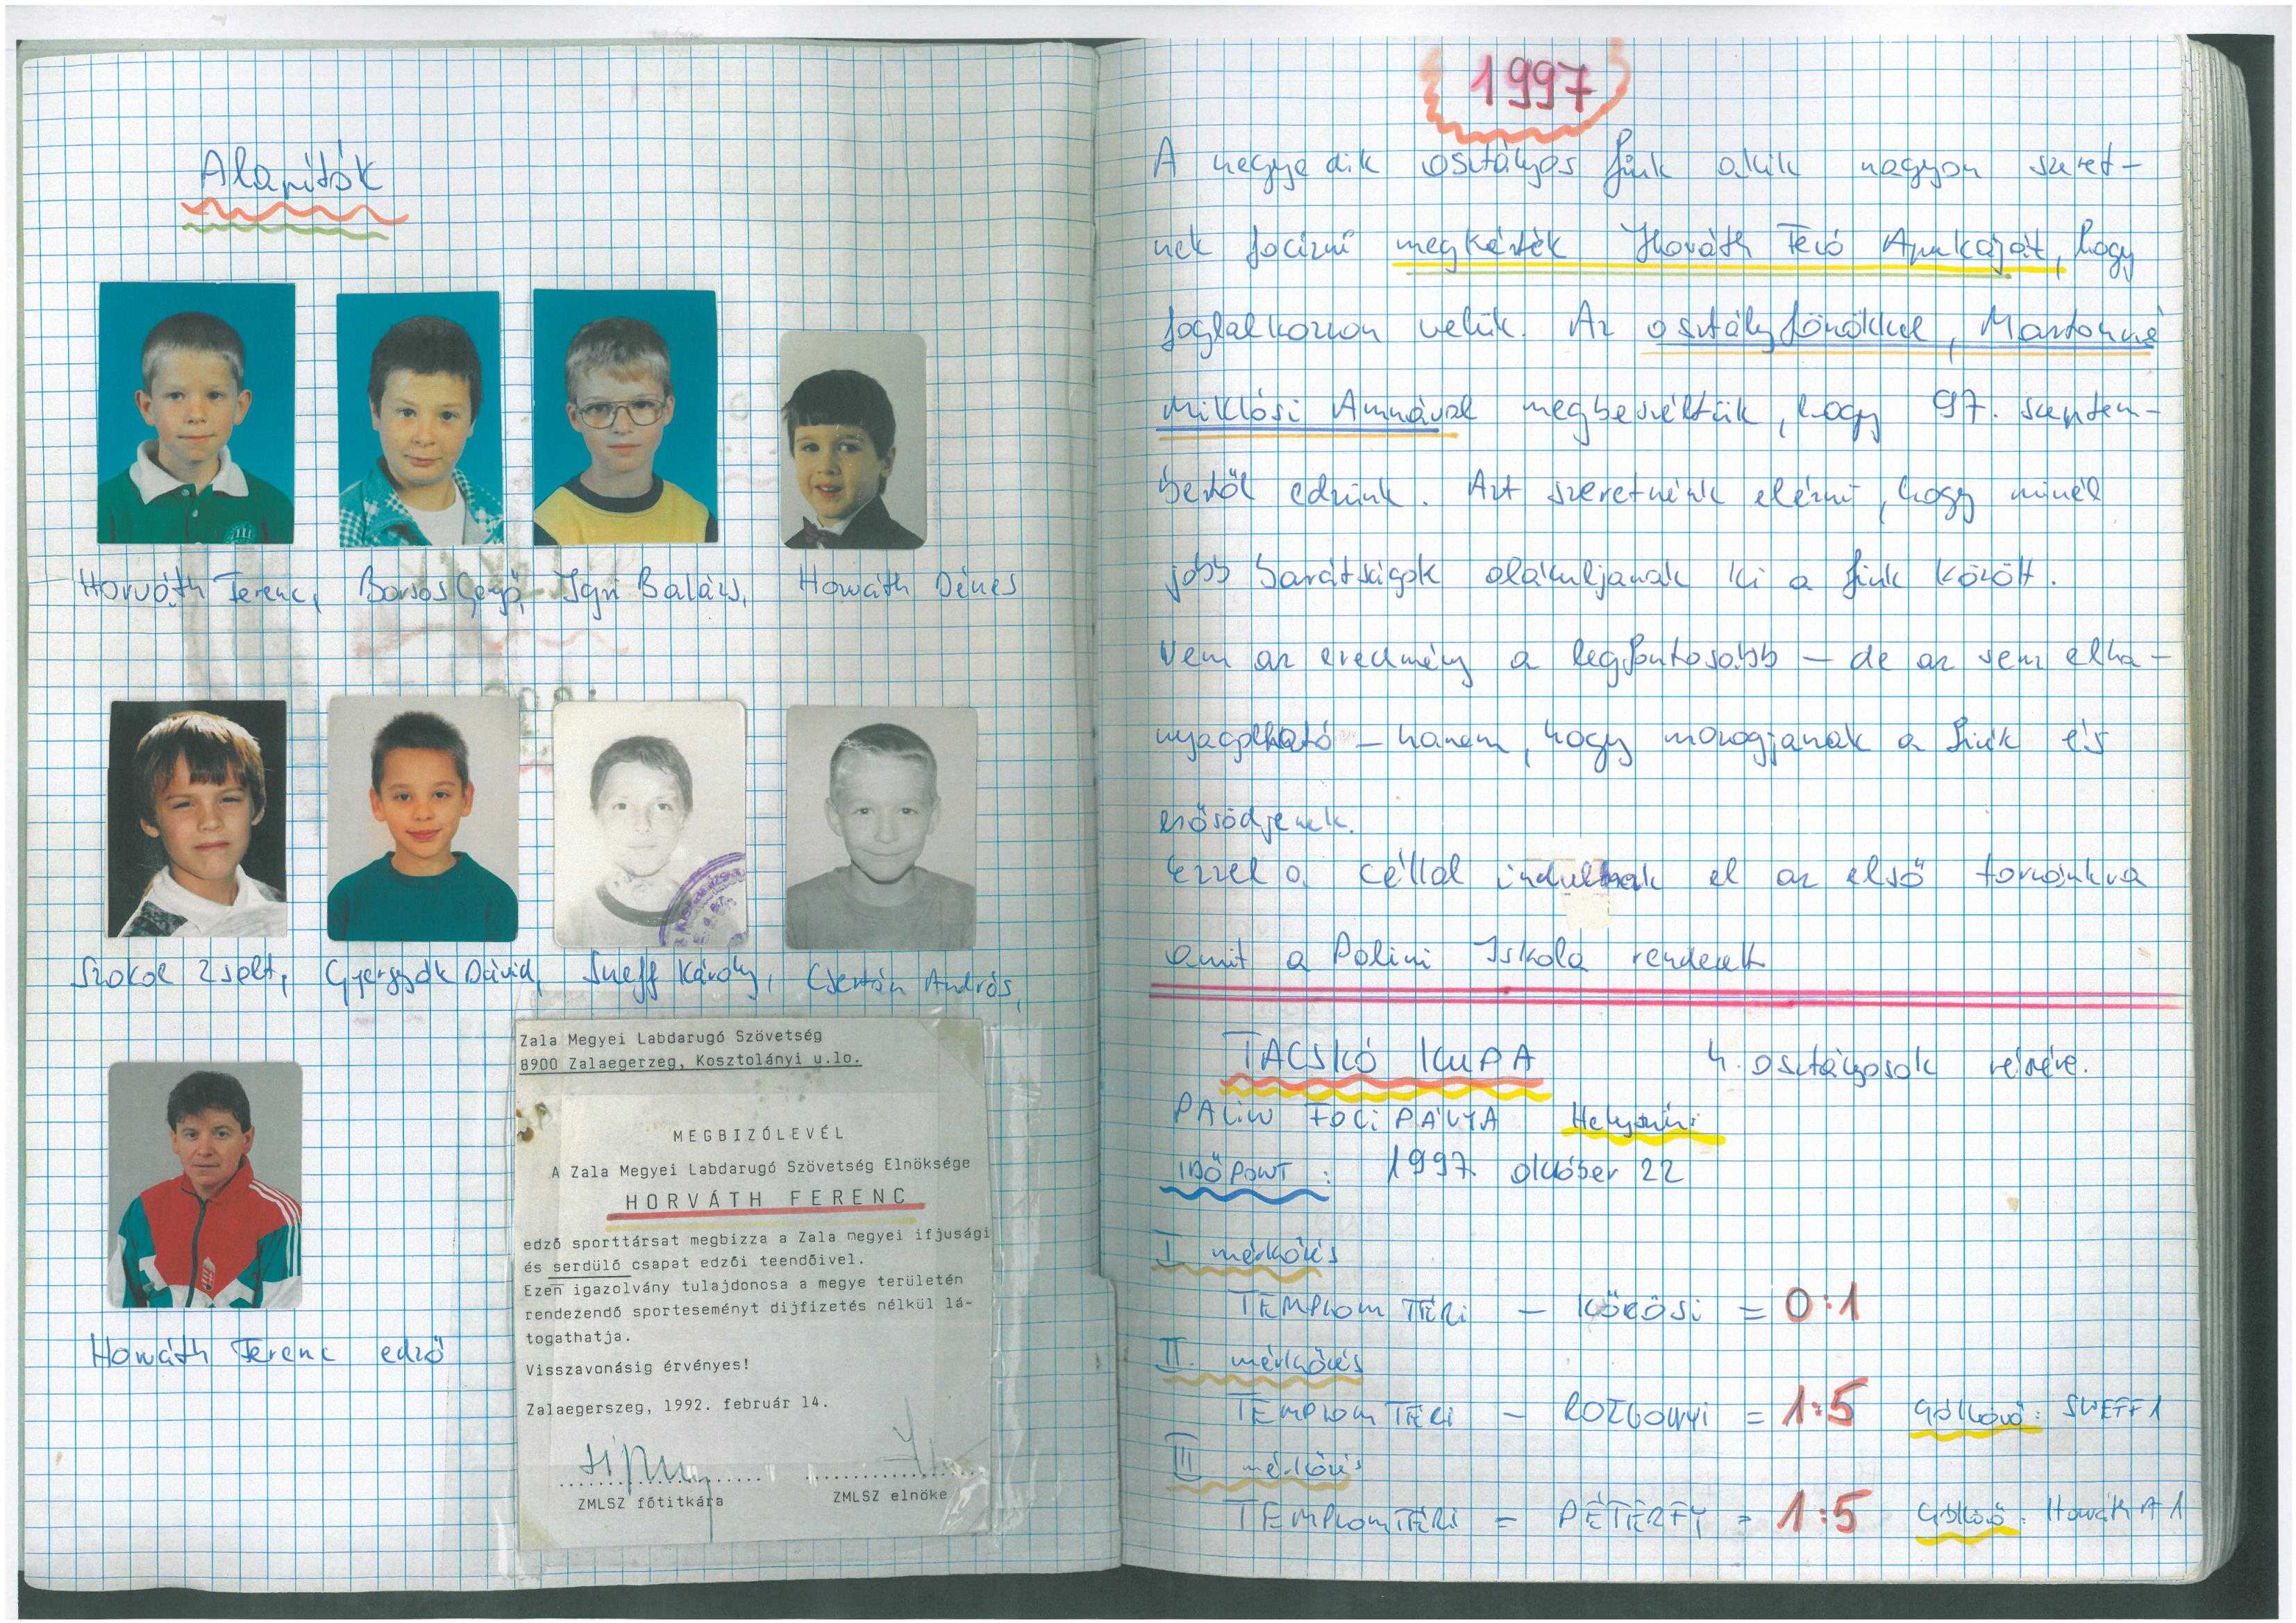 Alapítók
Horváth Ferenc, Borsos Gergő, Igri Balázs, Horváth Dénes
Szokol Zsolt, Gyergyák Dávid, Sneff Károly, Csertán András,
Horváth Ferenc edző
Zala Megyei Labdarugó Szövetség
8900 Zalaegerzeg, Kosztolányi u.lo.
MEGBIZÓLEVÉL
A Zala Megyei Labdarugó Szövetség Elnöksége
HORVÁTH FERENC
edző sporttársat megbizza a Zala megyei ifjusági
és serdülő csapat edzői teendőivel.
Ezen igazolvány tulajdonosa a megye területén
rendezendő sporteseményt dijfizetés nélkül lá-
togathatja.
Visszavonásig érvényes!
Zalaegerszeg, 1992. február 14.
ZMLSZ főtitkára ZMLSZ elnöke
1997
A negyedik osztályos fiúk akik nagyon szeret-
nek focizni megkérték Horváth Fecó Apukáját, hogy
foglalkozzon velük. Az osztályfőnökkel, Martonné
Miklósi Annával megbeszéltük, hogy 97. szeptem-
bertől edzünk. Azt szeretnénk elérni, hogy minél
jobb barátságok alakuljanak ki a fiúk között.
Nem az eredmény a legfontosabb – de az sem elha-
nyagolható – hanem, hogy mozogjanak a fiúk és
erősödjenek.
Ezzel a céllal indultunk el az első tornánkra
amit a Palini Iskola rendezett
TACSKÓ KUPA 4. osztályosok részére.
PALIN FOCI PÁLYA Helyszín:
IDŐPONT: 1997 október 22
I mérkőzés
TEMPLOM TÉRI – KŐRÖSI = 0:1
II. mérkőzés
TEMPLOM TÉRI – ROZGONYI = 1:5 Góllövő: SNEFF 1
III mérkőzés
TEMPLOM TÉRI = PÉTERFY = 1:5 Góllövő: Horváth F 1